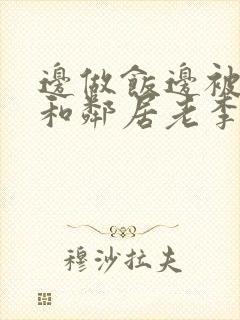 邊做飯邊被
和鄰居老李
穆沙拉夫